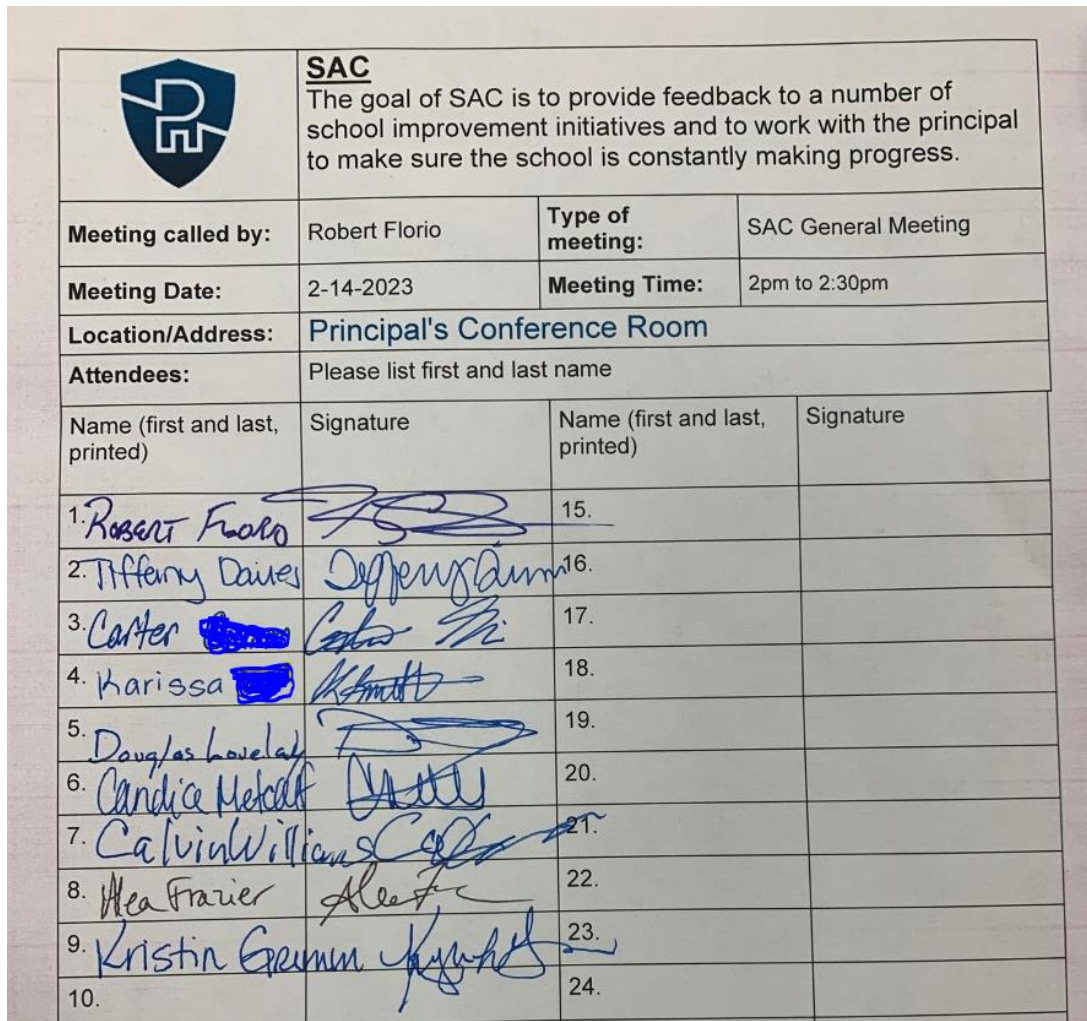 SAC
The goal of SAC is to provide feedback to a number of
school improvement initiatives and to work with the principal
to make sure the school is constantly making progress.
Meeting called by: Robert Florio Type of meeting: SAC General Meeting
Meeting Date: 2-14-2023 Meeting Time: 2pm to 2:30pm
Location/Address: Principal's Conference Room
Attendees: Please list first and last name
Name (first and last, printed) Signature Name (first and last, printed) Signature
1. ROBERT 15.
2. Tiffany 16.
3. Carter 17.
4. Karissa 18.
5. Douglas 19.
6. Candice Metcalf 20.
7. Calvin Williams 21.
8. Alea Frazier 22.
9. Kristin 23.
10. 24.